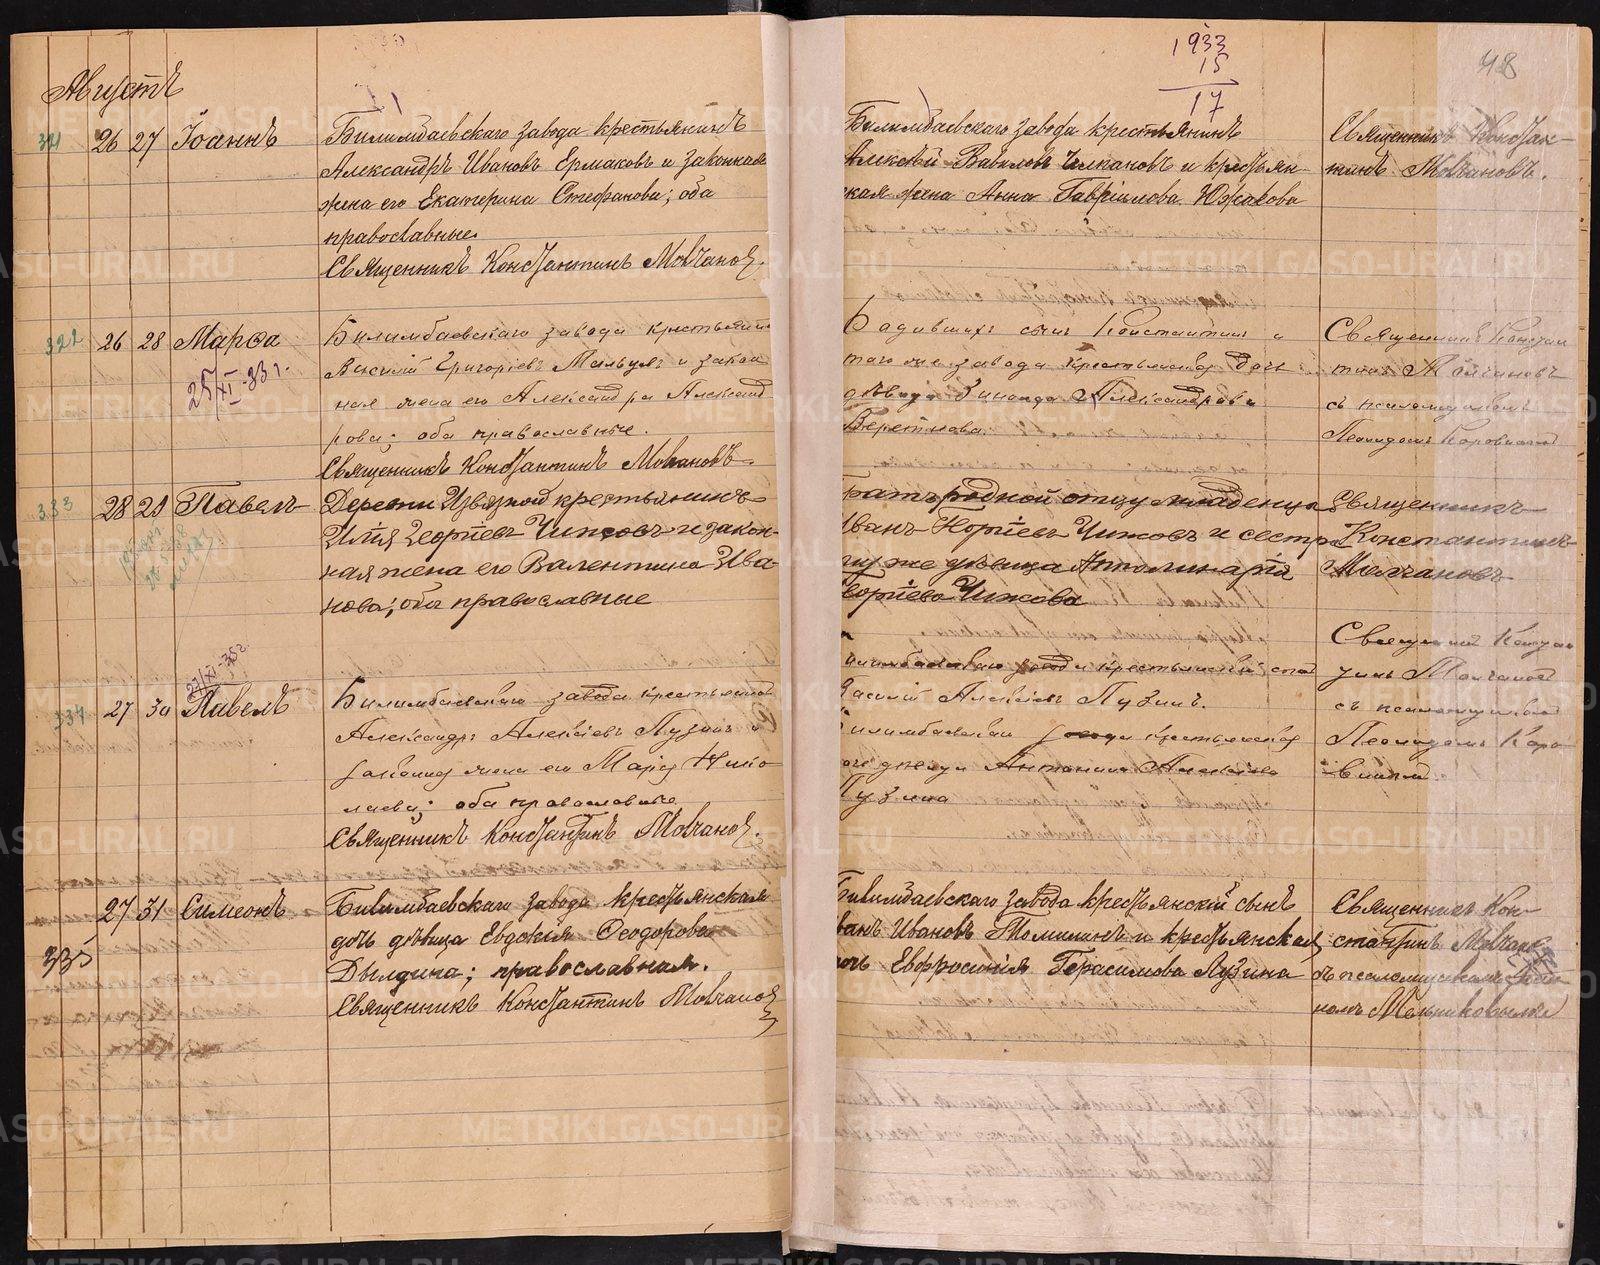 Августъ
1933
15
17
48
321 26 27 Іоаннъ
Билимбаевскаго завода крестьянинъ
Александръ Ивановъ Ермаковъ и законная
жена его Екатерина Стефанова; оба
православные
Священникъ Константинъ Молчановъ.
Билимбаевскаго завода крестьянинъ
Алексѣй Вавиловъ и крестьян-
ская жена Анна Гавріилова Южакова
Священникъ Констан-
тинъ Молчановъ.
322 26 28 Марѳа
25/XI-33 г.
Билимбаевскаго завода крестьянинъ
Василій Григоріевъ Мальцевъ и закон
ная жена его Александра Александ
рова; оба православные.
Священникъ Константинъ Молчановъ.
сынъ Константинъ и
того же завода крестьянская дочь
дѣвица Зинаида Александрова
Веретнова.
Священникъ Констан
тинъ Молчановъ
съ псаломщикомъ
Леонидомъ
333 28 29 Павелъ
Деревни крестьянинъ
Илія Георгіевъ Чижовъ и закон-
ная жена его Валентина Ива
нова; оба православные
Братъ родной отцу младенца
Иванъ Георгіевъ Чижовъ и сестра
дѣвица Аполинарія
Георгіева Чижова
Священникъ
Константинъ
Молчановъ
27/XI-35 г.
334 27 30 Павелъ
Билимбаевскаго завода крестьянинъ
Александръ Алексѣевъ Пузинъ и
законная жена его Марія Нико
лаева; оба православные.
Священникъ Константинъ Молчановъ.
Билимбаевскаго завода крестьянскій сынъ
Василій Алексѣевъ Пузинъ.
Билимбаевскаго завода крестьянская
дочь дѣвица Антонина Алексѣева
Пузина
Священникъ Констан
тинъ Молчановъ
съ псаломщикомъ
Леонидомъ
335 27 31 Симеонъ
Билимбаевскаго завода крестьянская
дочь дѣвица Евдокія Ѳеодорова
Дылдина; православная.
Священникъ Константинъ Молчановъ
Билимбаевскаго завода крестьянскій сынъ
Иванъ Ивановъ Томилинъ и крестьянская
дочь Евфросинія Герасимова Пузина
Священникъ Кон-
стантинъ Молчановъ
съ псаломщикомъ
Мельниковымъ
METRIKI.GASO-URAL.RU